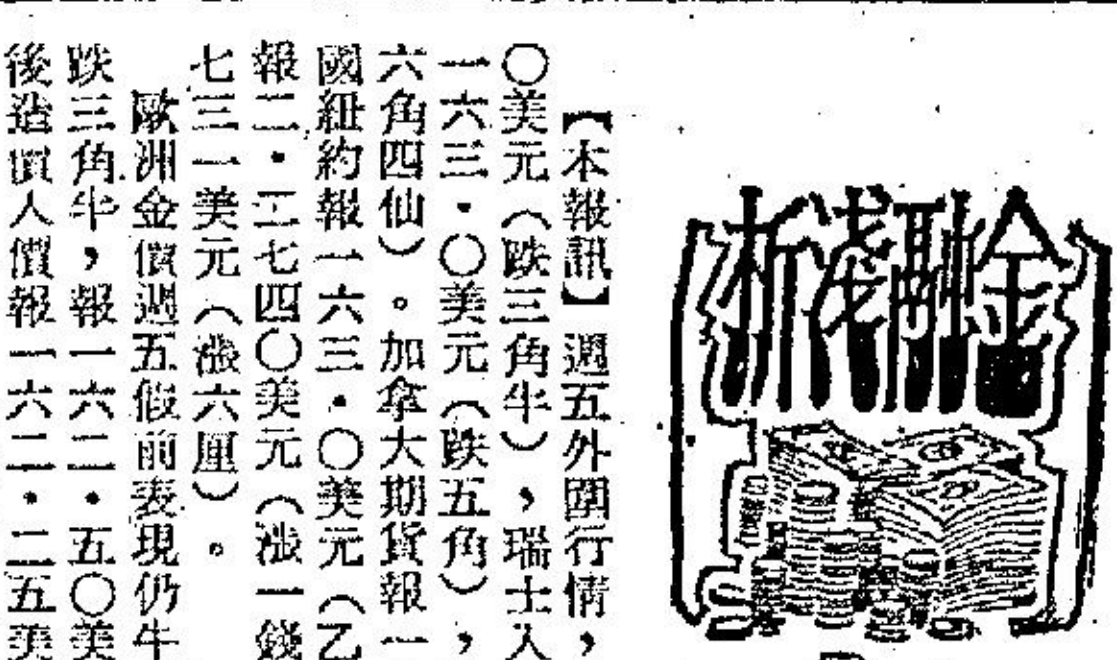 金融淺析
【本報訊】週五外圍行情，
〇美元（跌三角半），瑞士入
一六三・〇美元（跌五角），
六角四仙）。加拿大期貨報一
國紐約報一六三・〇美元（乙
報二・二七四〇美元（漲一錢
七三一美元（漲六厘）。
歐洲金價週五假前表現仍牛
跌三角半，報一六二・五〇美
後造價人價報一六二・二五美